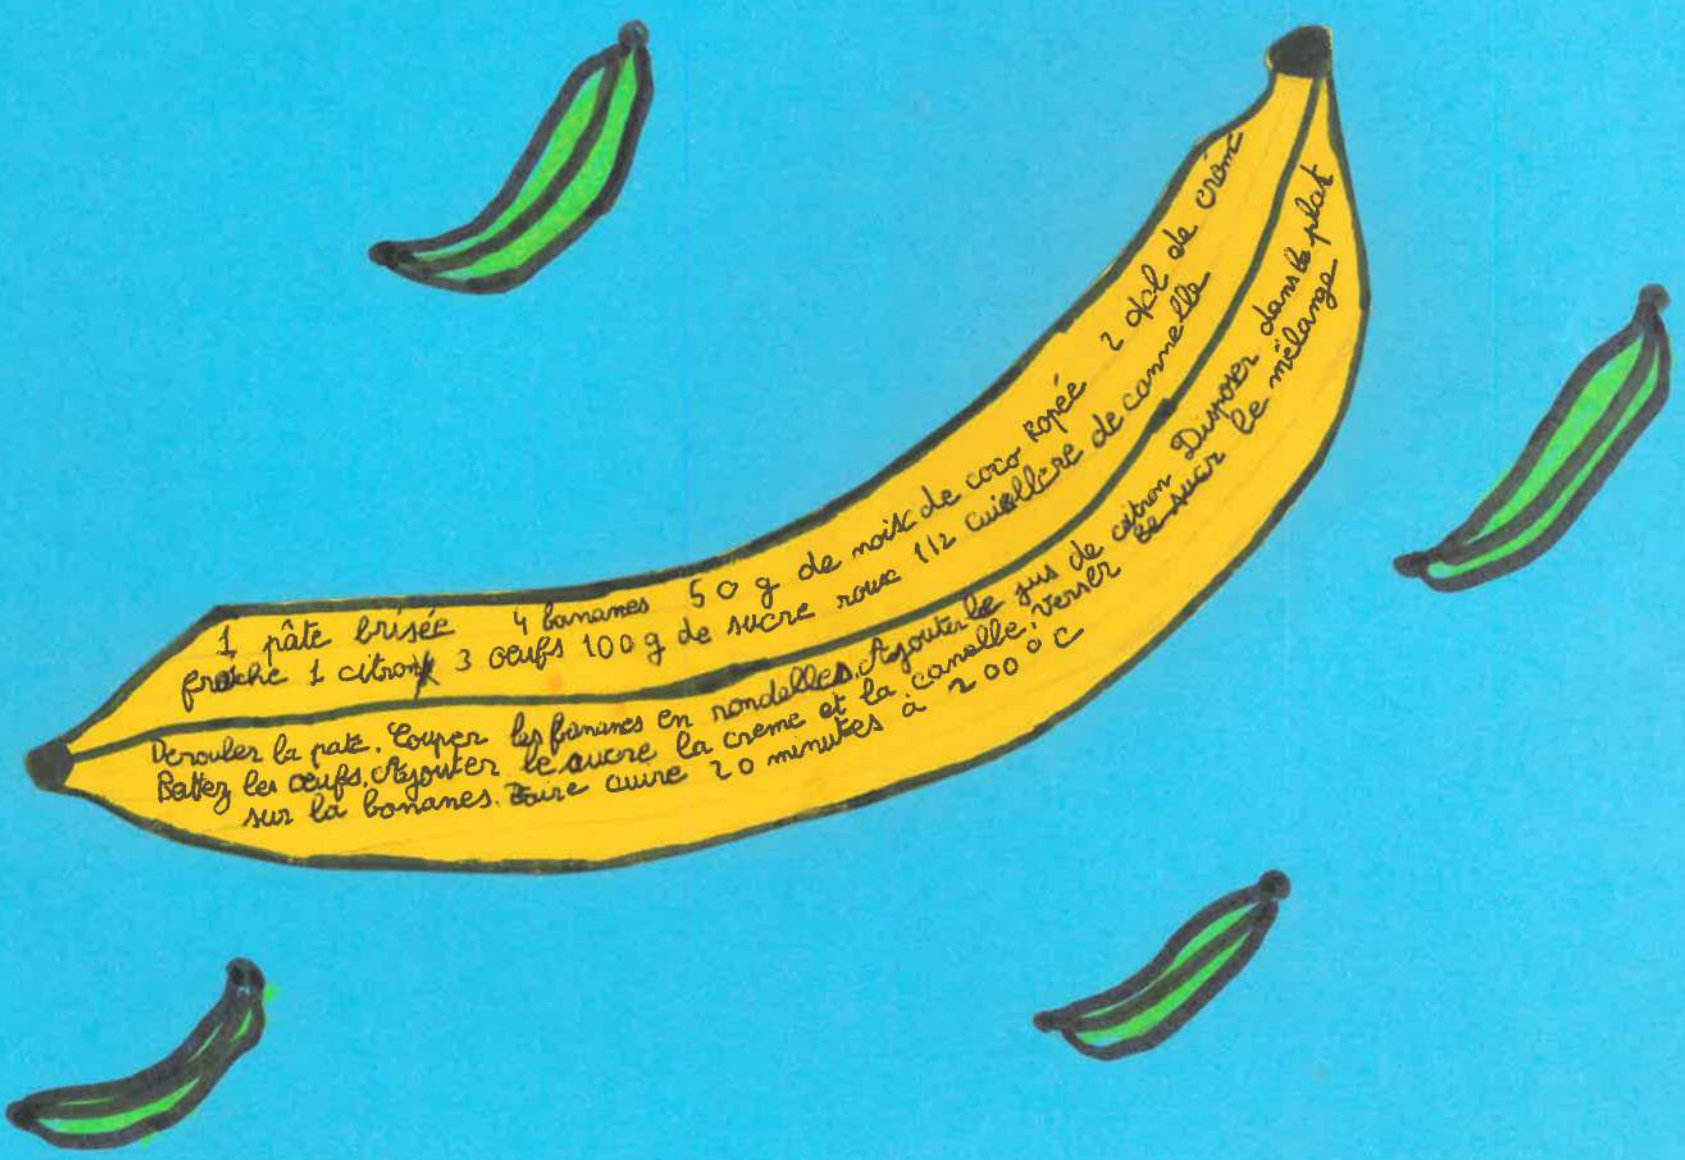 1 pâte brisée 4 bananes 50 g de noix de coco Rapée 2 dl de crème
fraîche 1 citron 3 oeufs 100 g de sucre roux 1/2 cuillère de cannelle
Derouler la pate. Couper les bananes en rondelles. Ajouter le jus de citron Disposer dans le plat
Battez les oeufs. Ajouter le sucre la creme et la canelle. Verser le mélange
sur la bananes. Faire cuire 20 minutes à 200°C